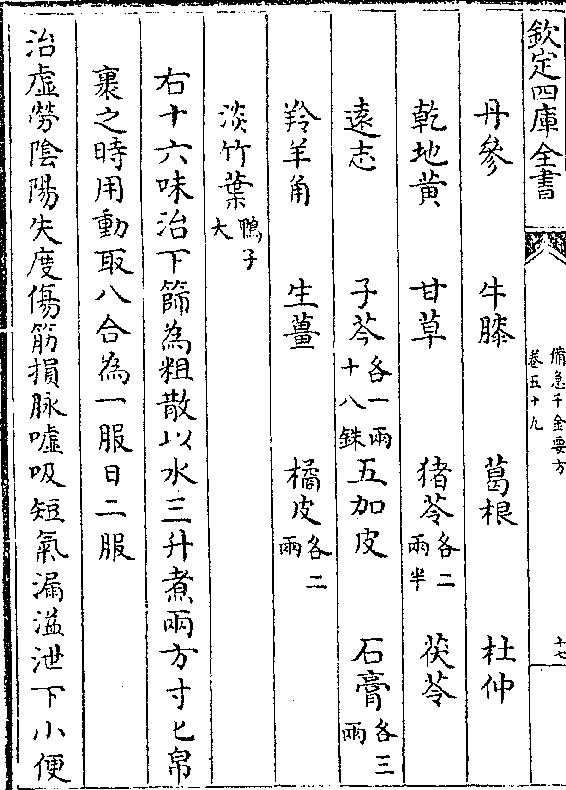 欽定四庫全書
備急千金要方
卷五十九
十七
丹參 牛膝 葛根 杜仲
乾地黄 甘草 猪苓各二兩半 茯苓
遠志 子芩各一兩十八銖 五加皮 石膏各三兩
羚羊角 生薑 橘皮各二兩
淡竹葉鴨子大
右十六味治下篩為粗散以水三升煮兩方寸匕帛
裹之時用動取八合為一服日二服
治虛勞陰陽失度傷筋損脉噓吸短氣漏溢泄下小便